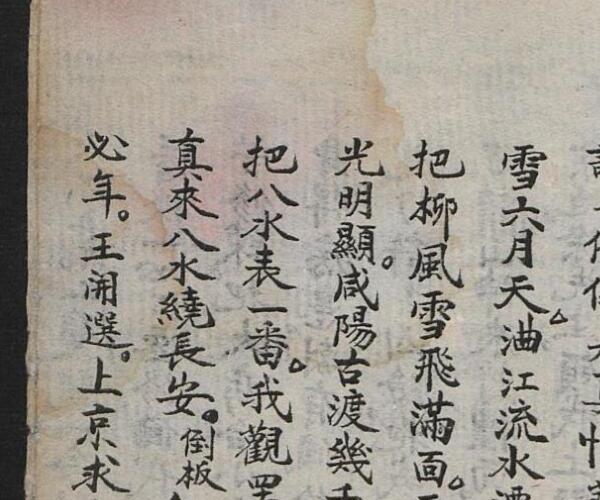 雪六月天。油江流水
把柳風雪飛滿面。
光明顯。咸陽古渡幾
把八水表一番。我觀
真來八水繞長安。倒板
必年。王開選。上京求